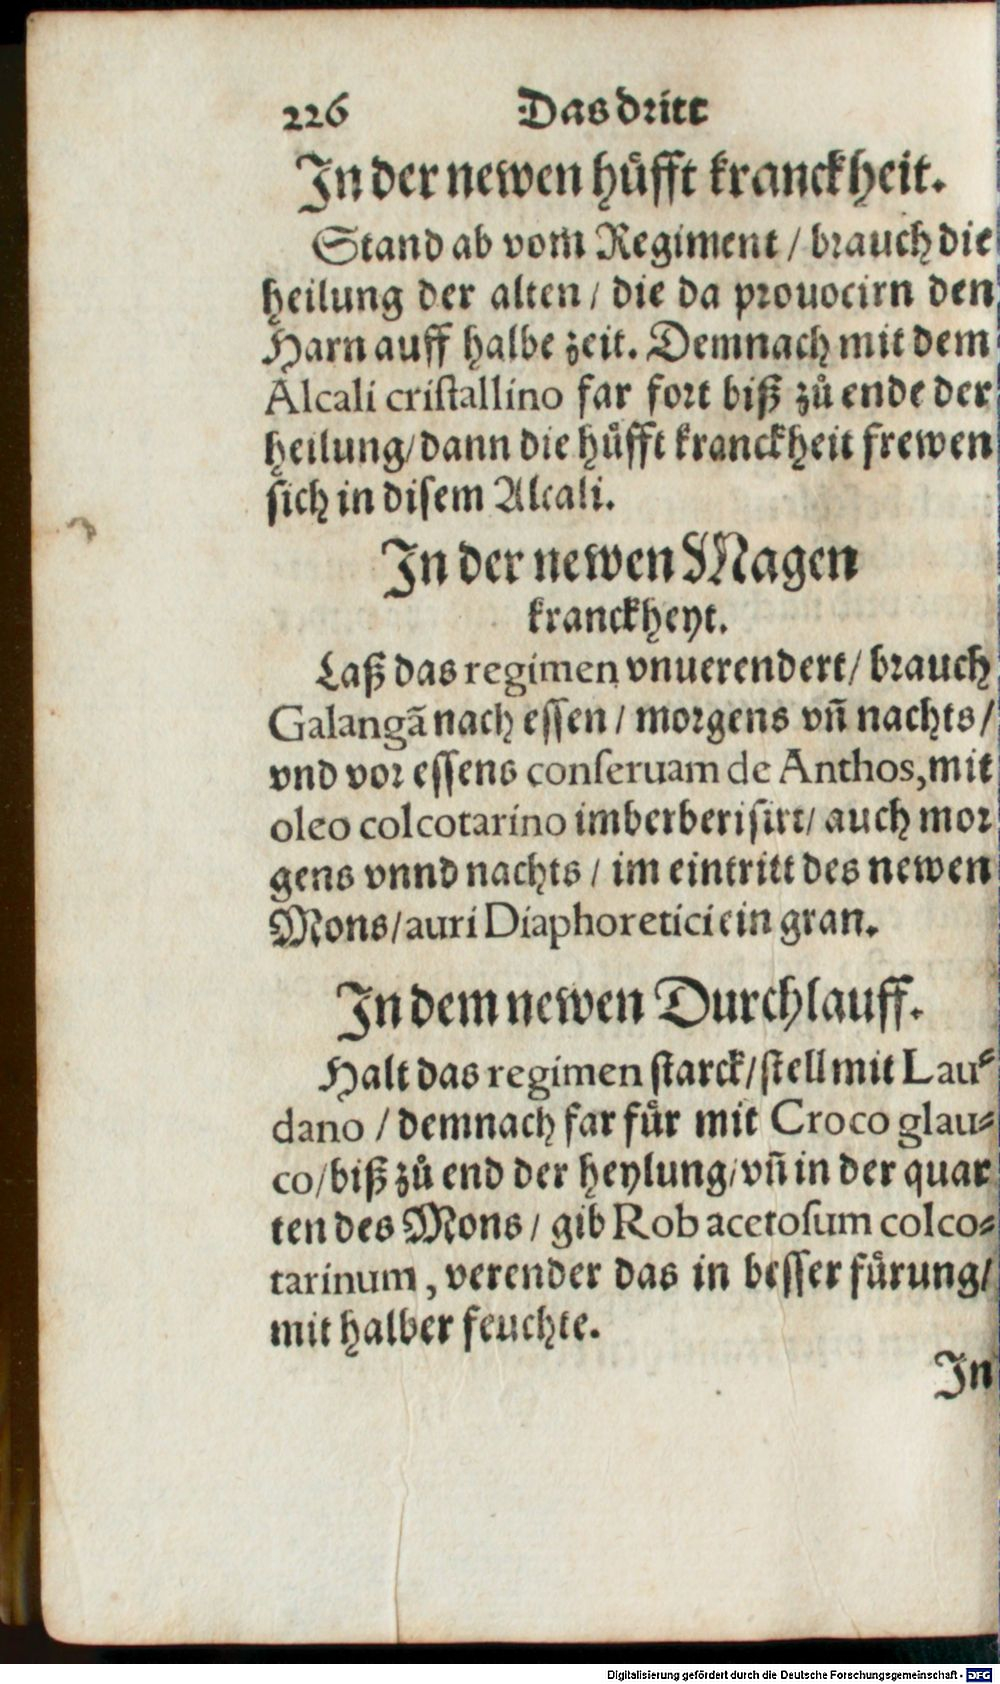 226 Das dritt
In der newen hůfft kranckheit.
Stand ab vom Regiment / brauch die
heilung der alten / die da prouocirn den
Harn auff halbe zeit. Demnach mit dem
Alcali cristallino far fort biß zů ende der
heilung / dann die hůfft kranckheit frewen
sich in disem Alcali.
In der newen Magen
kranckheyt.
Laß das regimen vnuerendert / brauch
Galangã nach essen / morgens vñ nachts /
vnd vor essens conseruam de Anthos, mit
oleo colcotarino imberberisirt / auch mor
gens vnnd nachts / im eintritt des newen
Mons / auri Diaphoretici ein gran.
In dem newen Durchlauff.
Halt das regimen starck / stell mit Lau⸗
dano / demnach far fůr mit Croco glau⸗
co / biß zů end der heylung / vñ in der quar
ten des Mons / gib Rob acetosum colco⸗
tarinum, verender das in besser fůrung /
mit halber feuchte.
In
Digitalisierung gefördert durch die Deutsche Forschungsgemeinschaft - DFG